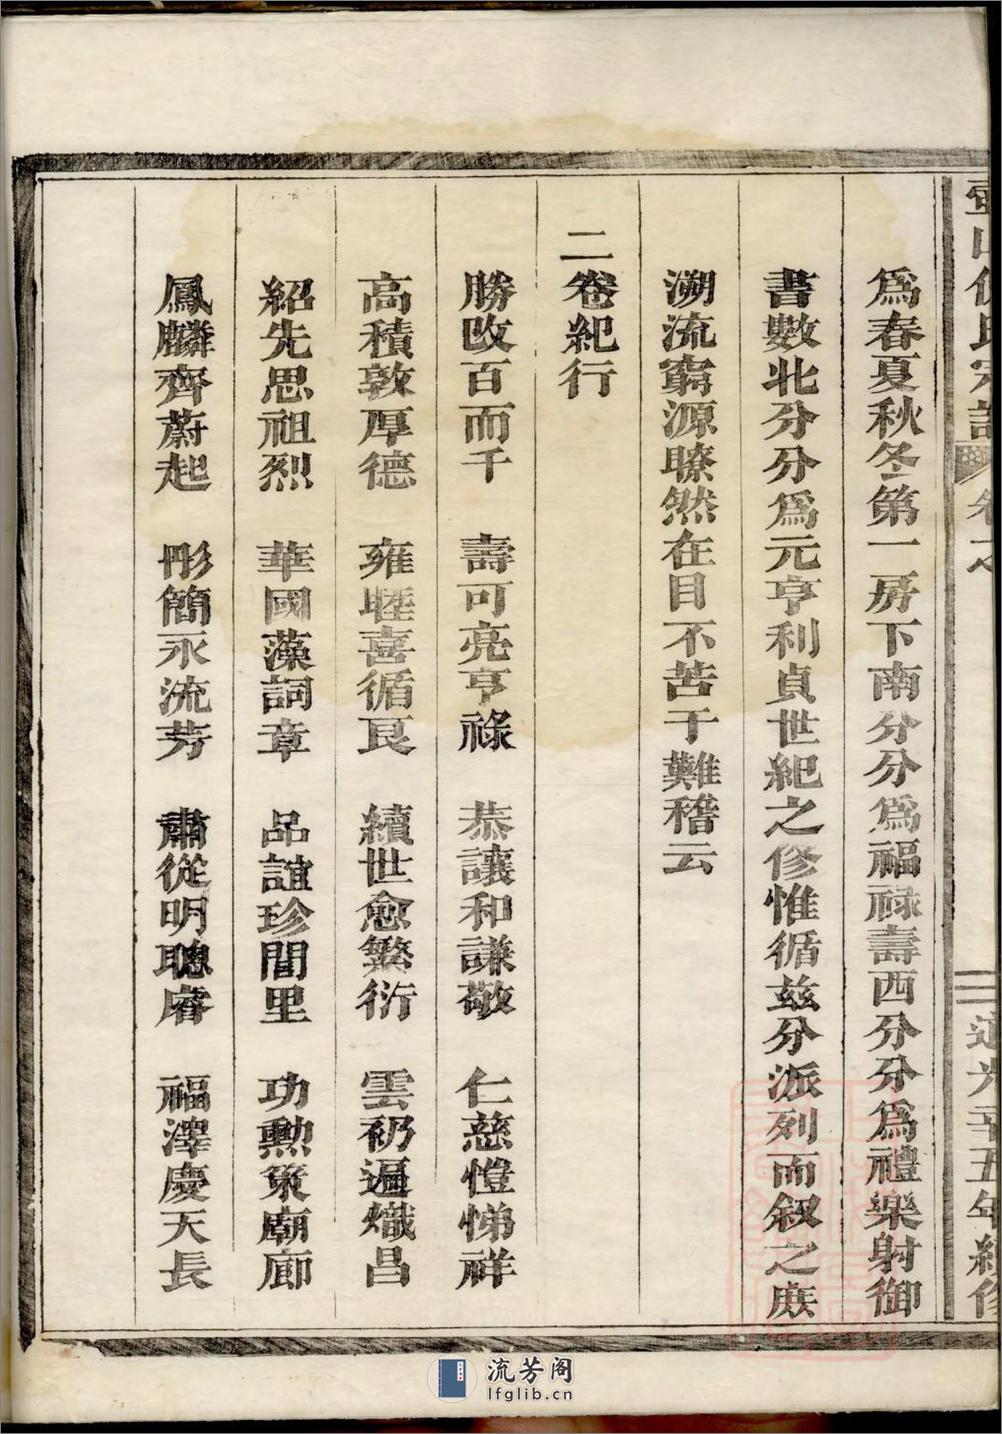 為春夏秋冬第一房下南分分為福祿壽西分分為禮樂射御
書數北分分為元亨利貞世紀之修惟循兹分派列而叙之庶
溯流窮源瞭然在目不苦于難稽云
二卷紀行
勝改百而千　壽可亮亨祿　恭讓和謙敬　仁慈愷悌祥
高積敦厚德　雍睦喜循良　續世愈繁衍　雲礽遍熾昌
紹先思祖烈　華國藻詞章　品誼珍閭里　功勲策廟廊
鳳麟齊蔚起　彤簡永流芳　肅從明聰睿　福澤慶天長
流芳阁
lfglib.cn